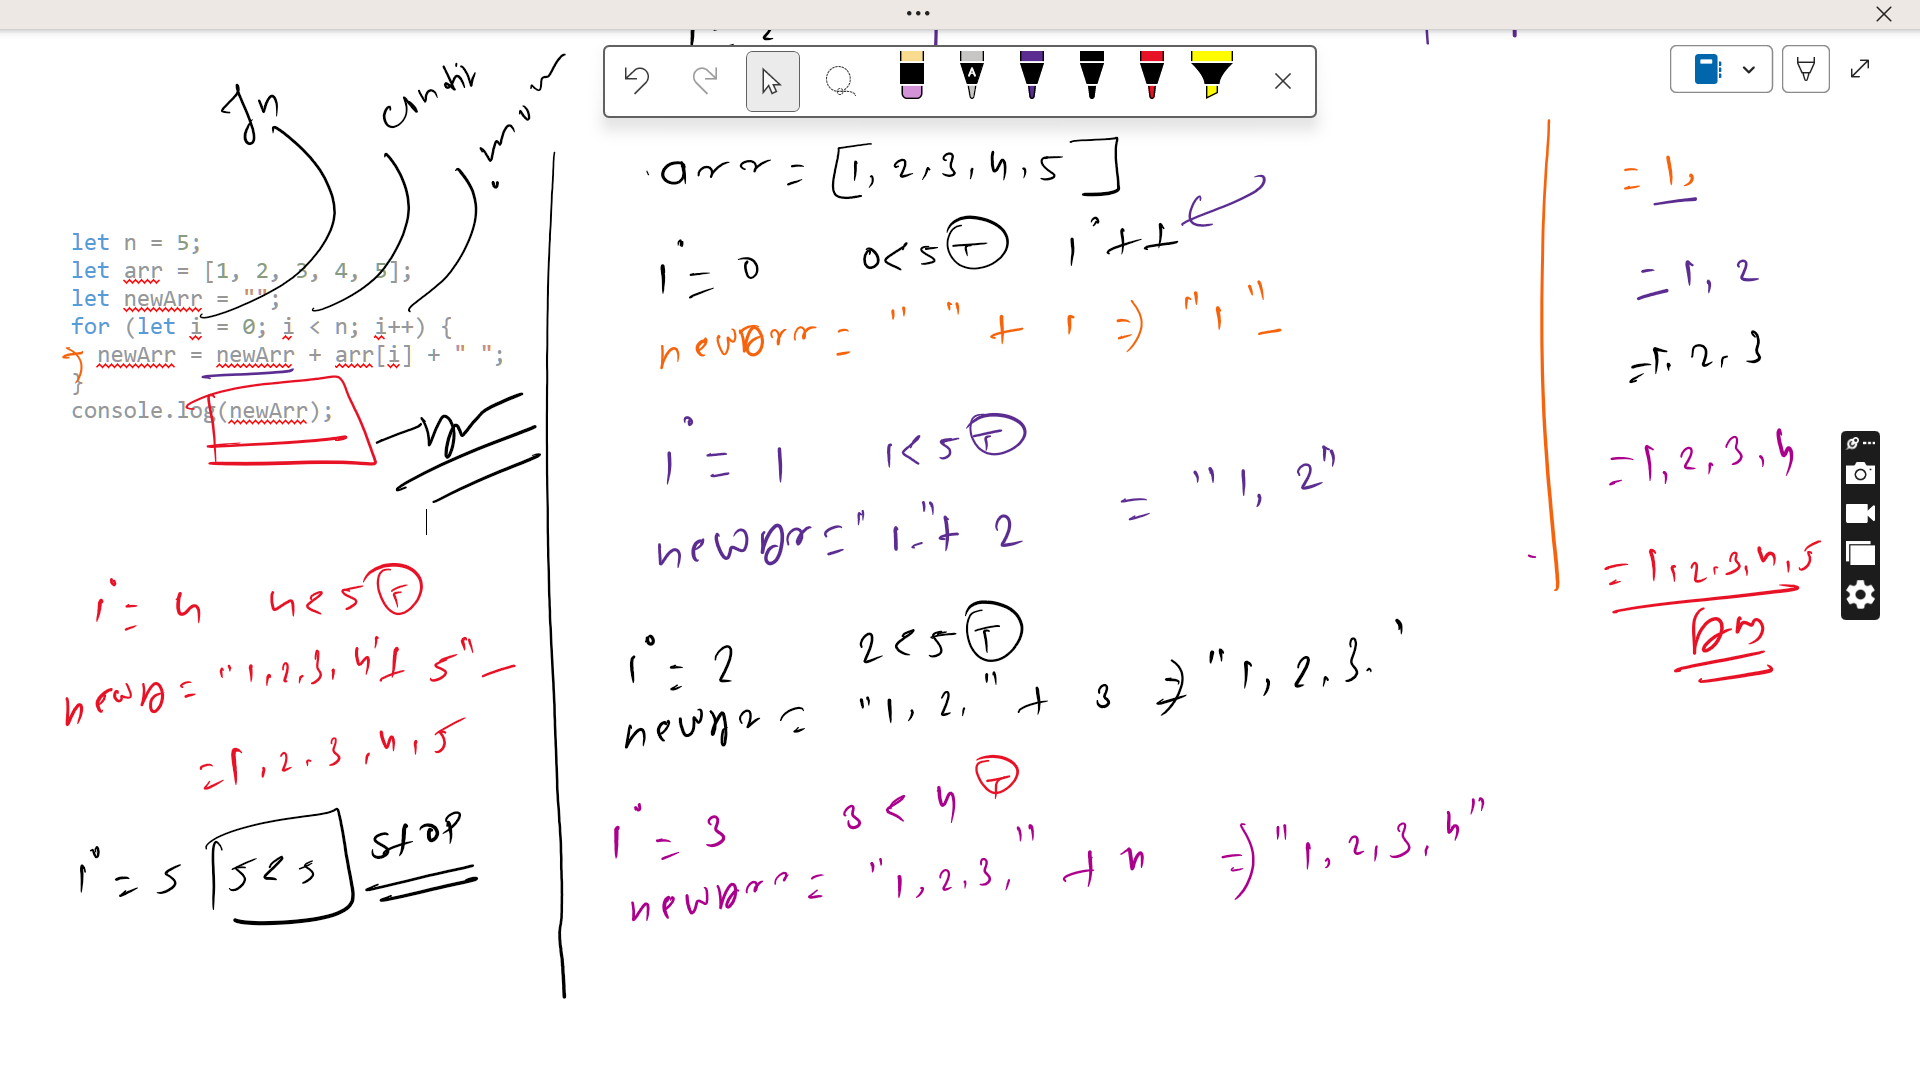 In condit
let n = 5;
let arr = [1, 2, 3, 4, 5];
let newArr = "";
for (let i = 0; i < n; i++) {
newArr = newArr + arr[i] + " ";
}
console.log(newArr);
i = 4 4 < 5 T
newA = "1,2,3,4" + 5"
= 1,2,3,4,5
i = 5 5<5 STOP
arr = [1,2,3,4,5]
i = 0 0<5 T i++1
newArr = " " + 1 => "1"
i = 1 1<5 T
newAr = "1." + 2 = "1, 2"
i = 2 2<5 T
newAr = "1, 2," + 3 => "1, 2, 3."
i = 3 3<4 T
newArr = "1,2,3," + 4 => "1, 2, 3, 4"
= 1,
= 1, 2
= 1, 2, 3
= 1, 2, 3, 4
= 1,2,3,4,5